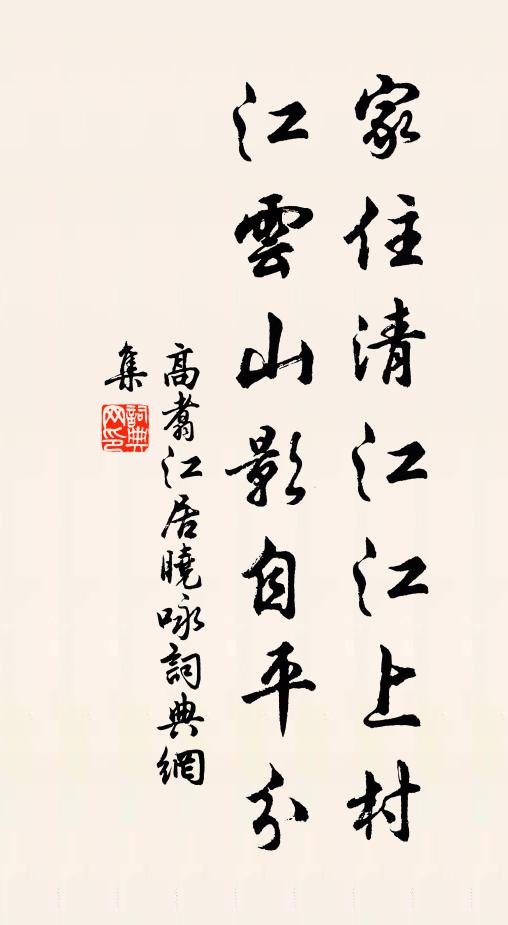 家住清江江上村
江雲山影自平分
高翥江居曉咏詞典網
集
詞典
网印